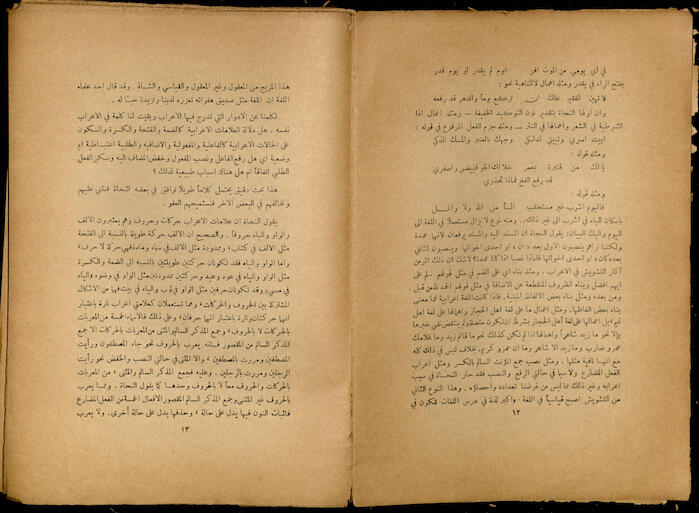 في أي يومي من الموت افر ايوم لم يقدر او يوم قدر
بفتح الراء في يقدر ومثله اهمال لا الناهية نحو :
لا تهين الفقير علك ان تركع يوماً والدهر قد رفعه
وان اولها النحاة بتقدير نون التوكيد الخفيفة — ومثله اهمال اذا
الشرطية في الشعر واعمالها في النثر — ومثله جزم الفعل المرفوع في قوله :
ابيت اسري وتبيتي تدلكي وجهك بالعنبر والمسك الذكي
ومثله قوله :
يا لك من قنبرة بمعمر خلا لك الجو فبيضي واصفري
قد رفع الفخ فماذا تحذري
ومثله قوله :
فاليوم اشرب غير مستحقب اثماً من الله ولا واغل
باسكان الباء في اشرب الى غير ذلك . ومنه نوع لا يزال مستعملاً في اللغة الى
اليوم واليك البيان: يقول النحاة ان المسند اليه والمسند يرفعان لانهما عمدة
ولكننا نراهم ينصبون الاول بعد « ان » او احدى اخواتها وينصبون الثاني
بعد «كان » او احدى اخواتها فلماذا نصبا اذا كانا عمدة؟ لاشك ان ذلك اثر من
آثار التشويش في الاعراب . ومثله بناء اي على الضم في مثل قولهم سلم على
ايهم افضل وبناء الظروف المنقطعة عن الاضافة في مثل قولهم الحمد لله من قبل
ومن بعد، ومثله بناء بعض الالفاظ المبنية . فاذا كانت اللغة اعرابية فما معنى
بناء بعض الفاظها. ومثل اعمال ما على لغة اهل الحجاز واهمالها على لغة اهل
تميم، بل اعمالها على لغة أهل الحجاز بشرط ان تكون متصلة ولم ينتقض نفي خبرها
بالا نحو ما زيد شاعراً واهمالها اذا لم تكن كذلك نحو ما قائم زيد وما غلامك
عمرو ضارب وما زيد الا شاعر وما ان عمرو كريم. بخلاف ليس في ذلك كله
مع انها نافية مثلها . ومثل نصب جمع المؤنث السالم بالكسر ومثل اعراب
الفعل المضارع ولا سيما في حالتي الرفع والنصب فقد حار النحاة في سبب
اعرابه وغير ذلك مما ليس من غرضنا تعداده واحصاؤه . وهذا النوع الثاني
من التشويش اصبح قياسياً في اللغة ، واكبر لذة في درس اللغات تتكون في
١٢
هذا المزيج من المعقول وغير المعقول والقياسي والشاذ . وقد قال احد علماء
اللغة ان اللغة مثل صديق هفواته تعززه لدينا وتزيدنا حباً له .
تكلمنا عن الادوار التي تدرج فيها الاعراب وبقيت لنا كلمة في الاعراب
نفسه . هل دلالة العلامات الاعرابية كالضمة والفتحة والكسرة والسكون
على الحالات الاعرابية كالفاعلية والمفعولية والاضافيه والطلبية اعتباطية ام
وضعية اي هل رفع الفاعل ونصب المفعول وخفض المضاف اليه وسكن الفعل
الطلبي اتفاقاً ام هل هناك اسباب طبيعية لذلك ؟
هذا بحث دقيق يحتمل كلاماً طويلاً نوافق في بعضه النحاة فنثني عليهم
ونخالفهم في البعض الآخر فنستميحهم العفو .
يقول النحاة ان علامات الاعراب حركات وحروف وهم يعتبرون الالف
والواو والياء حروفاً . والصحيح ان الالف حركة طويلة بالنسبة الى الفتحة
مثل الالف في كتاب، وممدودة مثل الالف في سماء ومادة فهي حركة لا حرف،
واما الواو والياء فقد تكونان حركتين طويلتين بالنسبه الى الضمة والكسرة
مثل الواو والياء في عود وعيد وحركتين ممدودتين مثل الواو في وضوء والياء
في مسيء وقد تكونان حرفين مثل الواو في ثوب والياء في بيت فهما من الاشكال
المشتركة بين الحروف والحركات، وهما تستعملان كعلامتي اعراب تارة باعتبار
انها حركتان وتارة باعتبار انها حرفان، وعلى ذلك فالاسماء الخمسة من المعربات
بالحركات لا بالحروف، وجمع المذكر السالم والمثنى من المعربات بالحركات الا جمع
المذكر السالم من المقصور فانه يعرب بالحروف نحو جاء المصطفون ورأيت
المصطفين ومررت بالمصطفين ، والا المثنى في حالتي النصب والخفض نحو رأيت
الرجلين ومررت بالرجلين . وعليه فجمع المذكر السالم والمثنى ، من المعربات
بالحركات والحروف معاً لا بالحروف وحدها كما يقول النحاة . ومما يعرب
بالحروف غير المثنى وجمع المذكر السالم المقصور الافعال الخمسة من الفعل المضارع
فاثبات النون فيها يدل على حالة ، وحذفها يدل على حالة أخرى. ولا يعرب
١٣